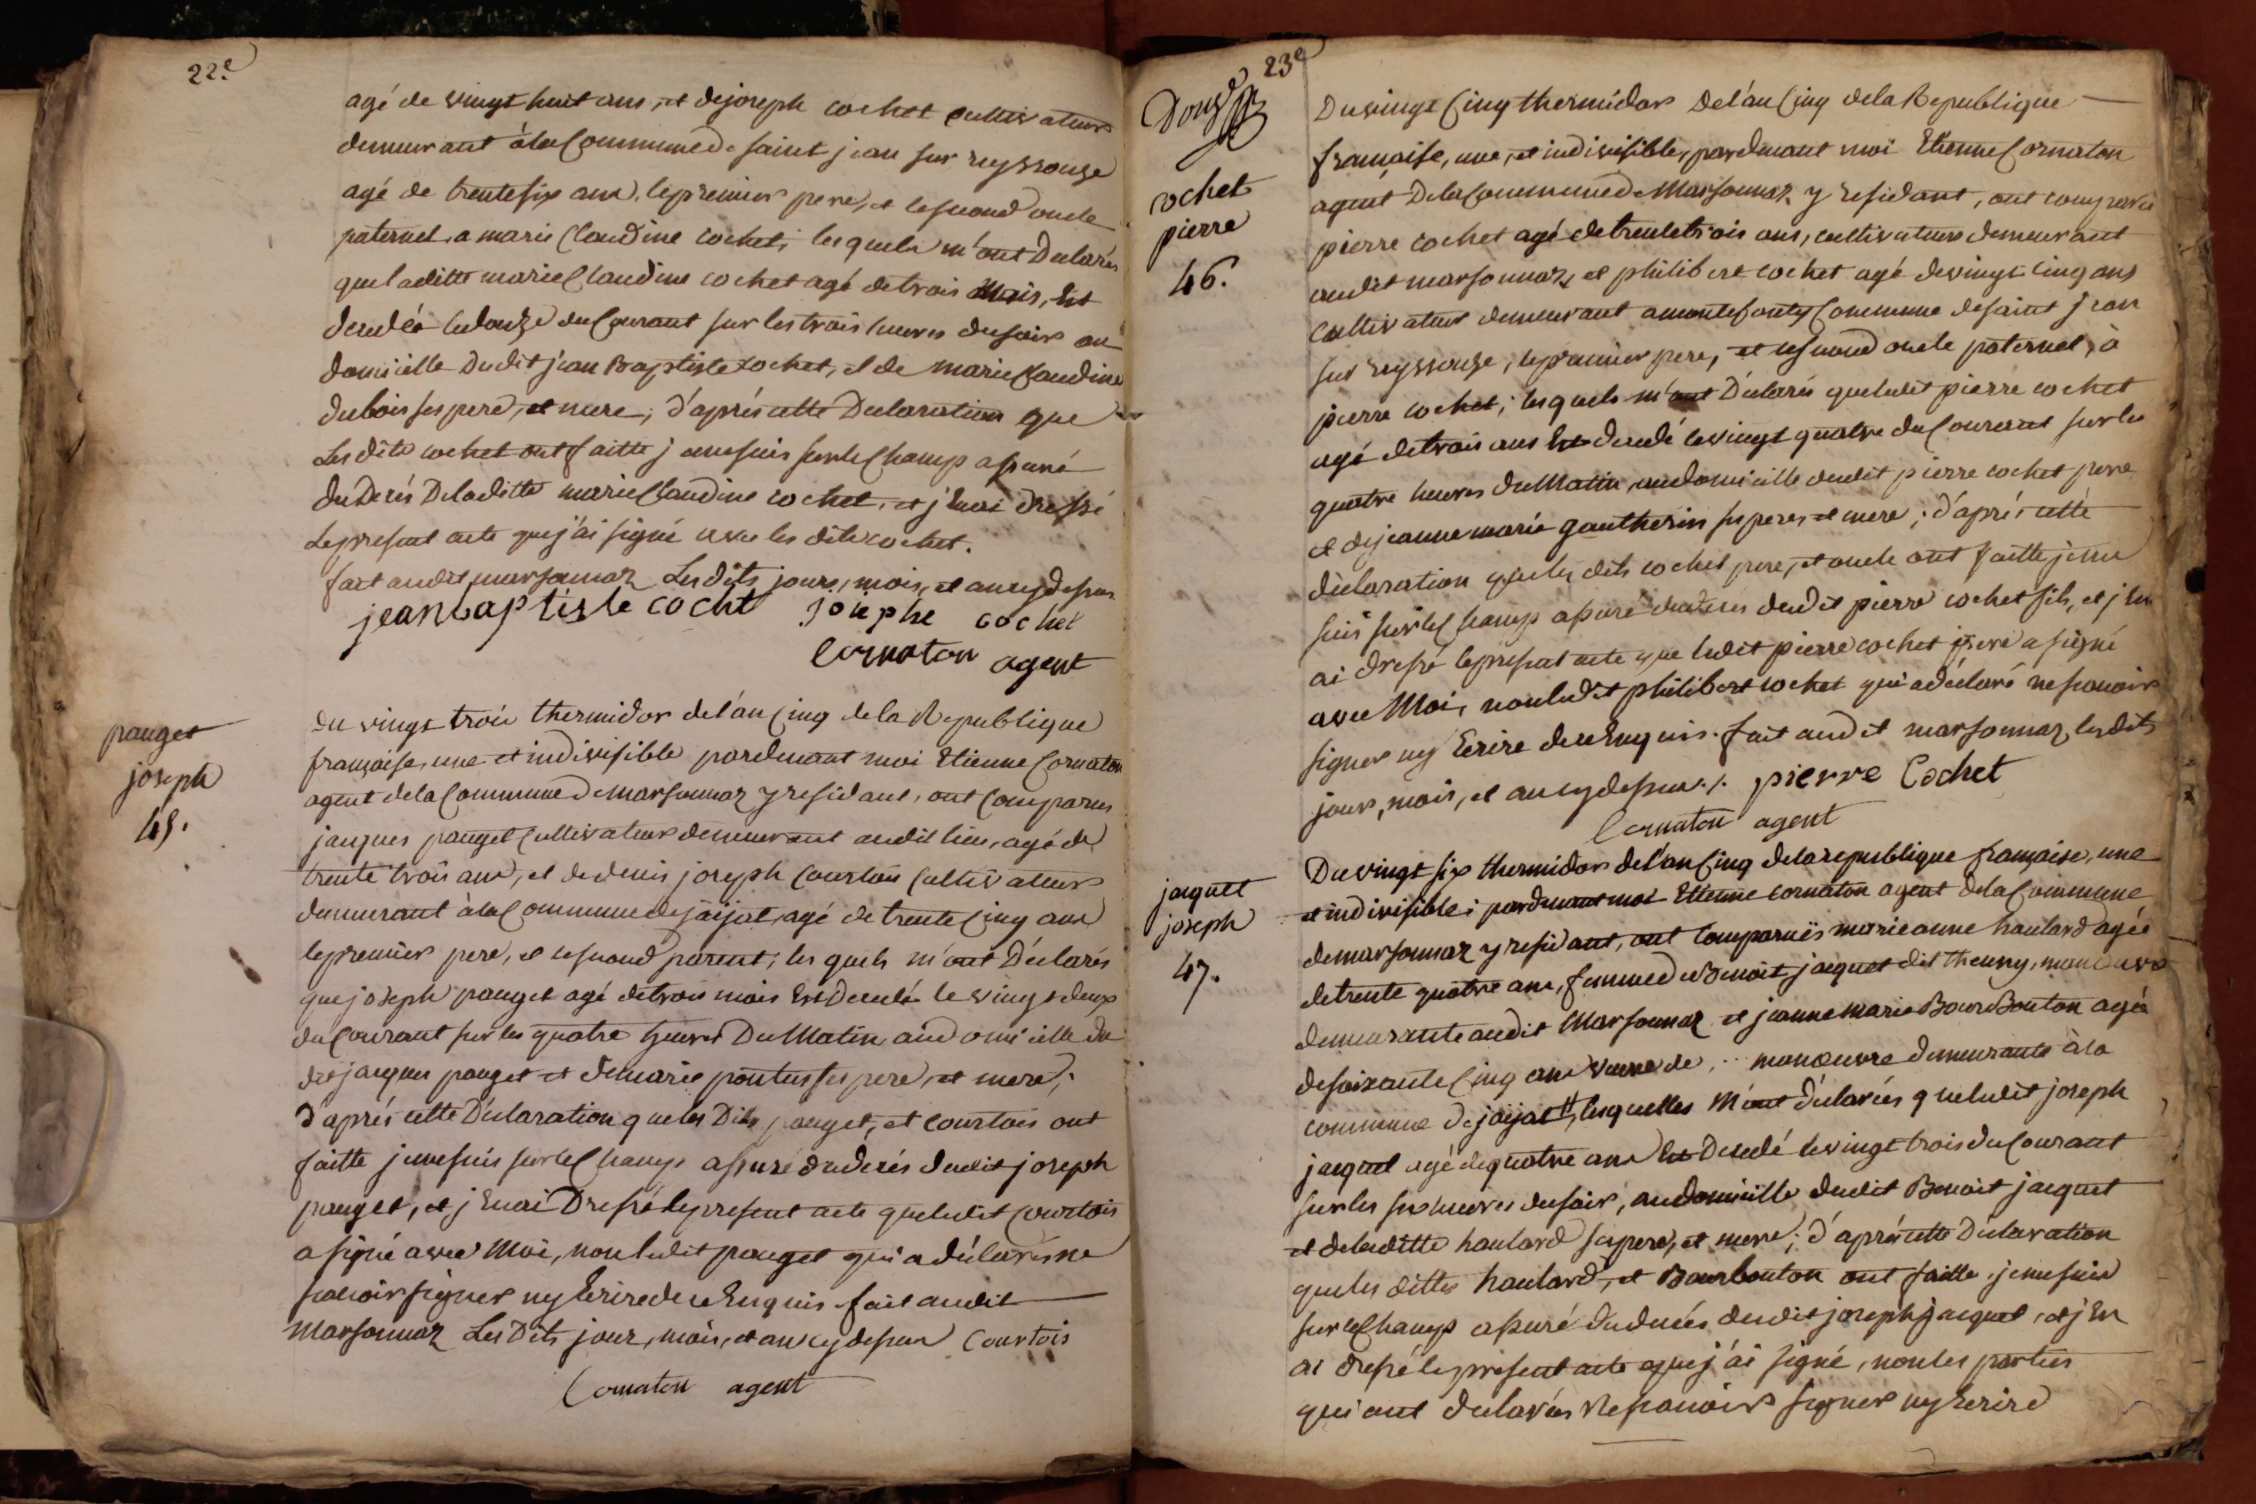 22.e
agé de vingt huit ans, et de joseph cochet cultivateur
demeurant à la Commune de saint jean sur reyssouze
agé de trente six ans, le premier pere, et le second oncle
paternel a marie Claudine cochet; lesquels m'ont Déclarés
que laditte marie Claudine cochet agé de trois Mois, Est
decedée le douze du Courant sur les trois heures du soir au
domicille dudit jean Baptiste cochet, et de marie Claudine
dubois ses pere, et mere; d'aprés cette Declaration que
Les dits cochet ont faitte je me suis sur le Champ assuré
du Decés De laditte marie Claudine cochet, et j'En ai dressé
Le present acte que j'ai signé avec les dits cochet.
fait audit marsonnaz Les dits jours, mois, et an cy dessus
jean baptiste cocht josephe cochet
Cornaton agent
pauget
joseph
45.
du vingt trois thermidor de l'an Cinq de la Republique
française, une et indivisible pardevant moi Etienne Cornaton
agent de la Commune de Marsonnaz y residant, ont Comparus
jacques pauget Cultivateur demeurant audit lieu, agé de
trente trois ans, et de denis joseph Courtois Cultivateur
demeurant à la Commune de jaÿat, agé de trente Cinq ans
le premier pere, et le second parent; lesquels m'ont Déclarés
que joseph pauget agé de trois mois Est Decedé le vingt deux
du Courant sur les quatre heures Du Matin au domicille du
dit jacques pauget et de marie pontus ses pere, et mere;
d'aprés cette Déclaration que les Dits pauget, et Courtois ont
faitte je me suis sur le Champ assuré du decés dudit joseph
pauget, et j'En ai Dressé le present acte que ledit Courtois
a signé avec Moi, non ledit pauget qui a déclarés ne
scavoir signer ny Ecrire de ce Enquis fait audit
Marsonnaz Les Dits jour, mois, et an cy dessus Courtois
Cornaton agent
23e
Douze
cochet
pierre
46.
Du vingt Cinq thermidor De l'an Cinq de la Republique
française, une, et indivisible, pardevant moi Etienne Cornaton
agent De la Commune de Marsonnaz y residant, ont comparu
pierre cochet agé de trente trois ans, cultivateur demeurant
audit marsonnaz, et philibert cochet agé de vingt cinq ans
Cultivateur demeurant a montefanty Commune de saint jean
sur reyssouze, le premier pere, et le second oncle paternel, à
pierre cochet; lesquels m'ont Déclarés que ledit pierre cochet
agé de trois ans Est decedé le vingt quatre du Courant sur les
quatre heures du Matin, au domicille dudit pierre cochet pere
et de jeanne marie gautherin ses peres et mere; d'aprés cette
déclaration que les dits cochet pere, et oncle ont faitte je me
suis sur le Champ assuré du decés dudit pierre cochet fils, et j'En
ai dressé le present acte que ledit pierre cochet pere a signé
avec Moi, non ledit philibert cochet qui a déclaré ne scavoir
signer ny Ecrire de ce Enquis. fait audit marsonnaz, les dits
jour, mois, et an cy dessus./. pierre Cochet
Cornaton agent
jacquet
joseph
47.
Du vingt six thermidor de l'an Cinq de la republique française, une
et indivisible; pardevant moi Etienne Cornaton agent de la Commune
de marsonnaz y residant, ont Comparuës marie anne hautard agée
de trente quatre ans, femme de Benoit jacquet dit theury, manœuvre
demeurante audit Marsonnaz et jeanne marie Bourbouton agée
de soixante Cinq ans veuve de ... manœuvre demeurante à la
commune de jaÿat, lesquelles M'ont déclarées que ledit joseph
jacquet agé de quatre ans Est Decedé le vingt trois du Courant
sur les six heures du soir, au domicille dudit Benoit jacquet
et de laditte hautard ses pere, et mere; d'aprés cette Déclaration
que les dittes hautard, et Bourbouton ont faitte je me suis
sur le Champ assuré du decés dudit joseph jacquet, et j'En
ai dressé le present acte que j'ai signé, non les parties
qui ont declarées Ne scavoir signer ny Ecrire